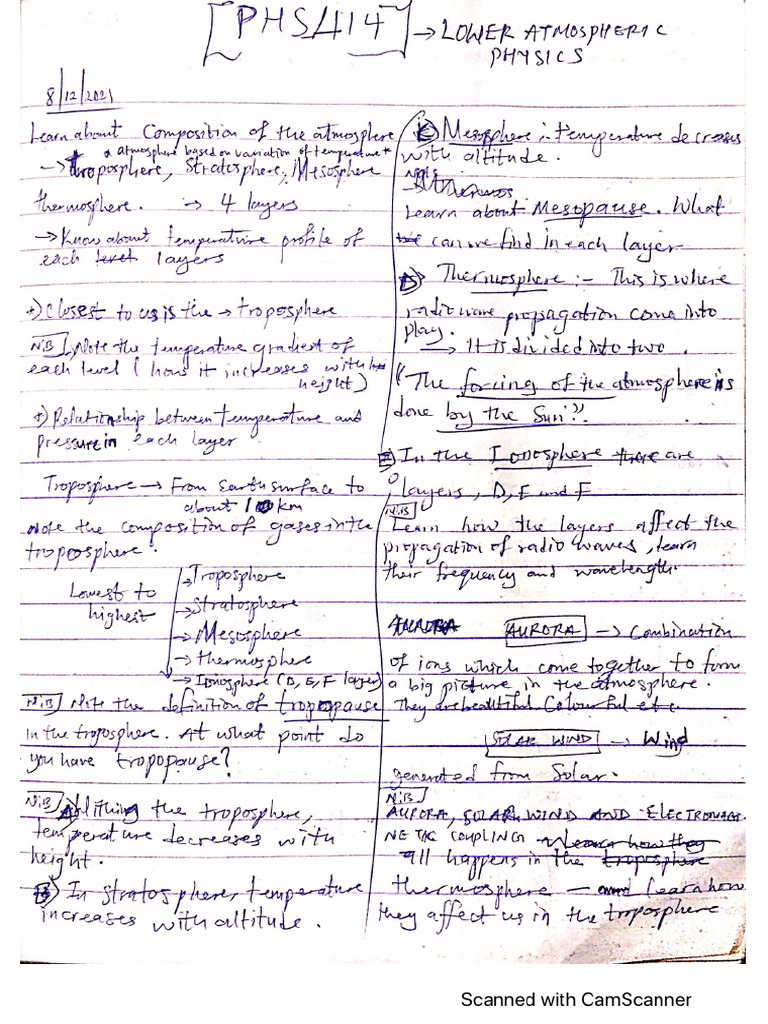 [PHS414] → LOWER ATMOSPHERIC
PHYSICS
8/12/2021
Learn about Composition of the atmosphere
* atmosphere based on variation of temperature *
→ troposphere, Stratosphere, Mesosphere
thermosphere. → 4 layers
→ Know about temperature profile of
each level layers
+) Closest to us is the → troposphere
N.B Note the temperature gradient of
each level (how it increases with
height)
+) Relationship between temperature and
pressure in each layer
Troposphere → From Earth surface to
about 10km
Note the composition of gases in the
troposphere.
Lowest to
highest
→ Troposphere
→ Stratosphere
→ Mesosphere
→ thermosphere
→ Ionosphere (D, E, F layer)
N.B Note the definition of tropopause
in the troposphere. At what point do
you have tropopause?
N.B A) Within the troposphere,
temperature decreases with
height.
B) In stratosphere, temperature
increases with altitude.
C) Mesosphere :- temperature decreases
with altitude.
Learn about Mesopause. What
can we find in each layer
D) Thermosphere :- This is where
radio wave propagation come into
play.
→ It is divided into two.
"The forcing of the atmosphere is
done by the Sun".
E) In the Ionosphere there are
layers, D, E and F
N.B
Learn how the layers affect the
propagation of radio waves, learn
their frequency and wavelength.
AURORA AURORA → Combination
of ions which come together to form
a big picture in the atmosphere.
They are beautiful Colourful etc.
SOLAR WIND → Wind
generated from Solar.
N.B
AURORA, SOLAR WIND AND ELECTROMAG-
NETIC COUPLING Learn how they
all happens in the troposphere
thermosphere — and learn how
they affect us in the troposphere
Scanned with CamScanner